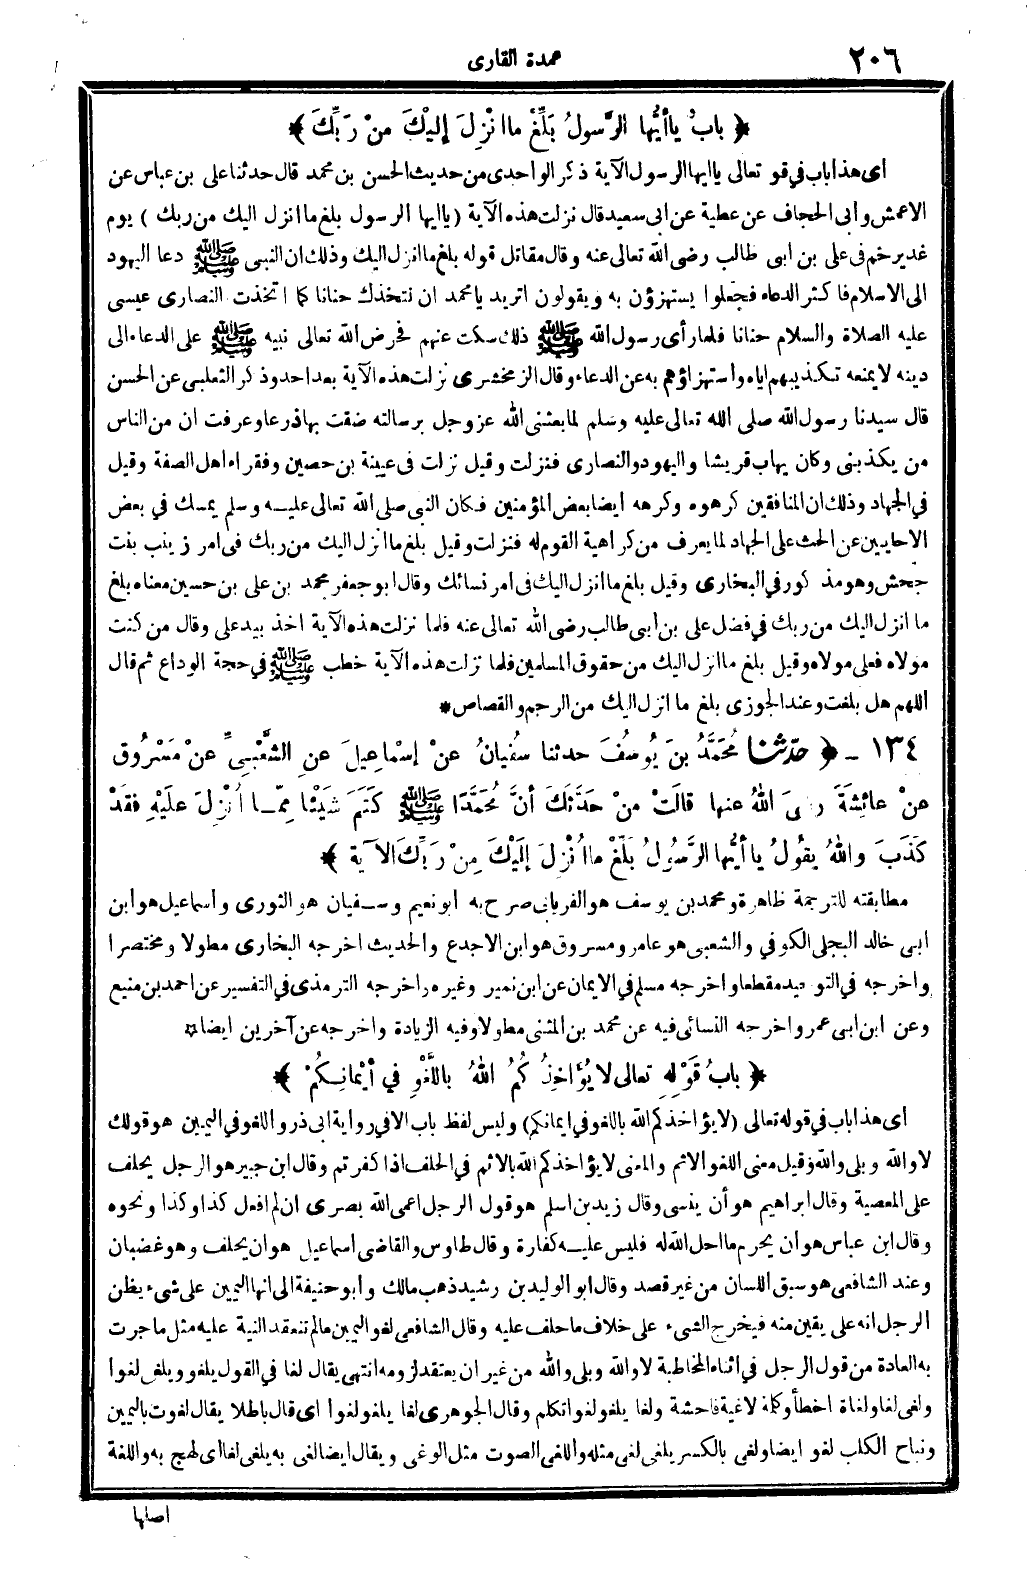 ٢٠٦
عمدة القارى
﴿ بابُ ياأيُّها الرَّسولُ بَلِّغْ ماانْزِلَ إليْكَ منْ رَبِّكَ ﴾
اى هذا باب فى قو تعالى ياايها الرسول الآية ذكر الواحدى من حديث الحسن بن محمد قال حدثنا على بن عباس عن
الاعمش وأبى الحجاف عن عطية عن ابى سعيد قال نزلت هذه الآية (ياايها الرسول بلغ ما انزل اليك من ربك ) يوم
غدير خم فى على بن ابى طالب رضى الله تعالى عنه وقال مقاتل قوله بلغ ما انزل اليك وذلك ان النبى ﷺ دعا اليهود
الى الاسلام فاكثر الدعاء فجعلوا يستهزؤن به ويقولون اتريد يامحمد ان نتخذك حنانا كما اتخذت النصارى عيسى
عليه الصلاة والسلام حنانا فلما رأى رسول الله ﷺ ذلك سكت عنهم فحرض الله تعالى نبيه ﷺ على الدعاء الى
دينه لا يمنعه تكذيبهم اياه واستهزاؤهم به عن الدعاء وقال الزمخشرى نزلت هذه الآية بعد احد وذكر الثعلبى عن الحسن
قال سيدنا رسول الله صلى الله تعالى عليه وسلم لما بعثنى الله عز وجل برسالته ضقت بها ذرعا وعرفت ان من الناس
من يكذبنى وكان يهاب قريشا واليهود والنصارى فنزلت وقيل نزلت فى عيينة بن حصين وفقراء اهل الصفة وقيل
فى الجهاد وذلك ان المنافقين كرهوه وكرهه ايضا بعض المؤمنين فكان النبى صلى الله تعالى عليه وسلم يمسك فى بعض
الاحايين عن الحث على الجهاد لما يعرف من كراهية القوم له فنزلت وقيل بلغ ما انزل اليك من ربك فى امر زينب بنت
جحش وهو مذكور فى البخارى وقيل بلغ ما انزل اليك فى امر نسائك وقال ابو جعفر محمد بن على بن حسين معناه بلغ
ما انزل اليك من ربك فى فضل على بن ابى طالب رضى الله تعالى عنه فلما نزلت هذه الآية اخذ بيد على وقال من كنت
مولاه فعلى مولاه وقيل بلغ ما انزل اليك من حقوق المسلمين فلما نزلت هذه الآية خطب ﷺ فى حجة الوداع ثم قال
اللهم هل بلغت وعند الجوزى بلغ ما انزل اليك من الرجم والقصاص *
١٣٤ - ﴿ حدّثنا مُحَمَّدُ بنَ يوسُفَ حدثنا سُفيانُ عنْ إسْماعِيلَ عنِ الشَّعْبِىِّ عنْ مَسْرُوق
عنْ عائِشَةَ رضىَ اللهُ عنها قالَتْ منْ حَدَّثَكَ أنَّ مُحَمَّدًا ﷺ كَتَمَ شَيْئًا مِمّا اُنْزِلَ علَيْهِ فقَدْ
كَذَبَ واللهُ يقولُ ياأيُّها الرَّسُولُ بَلِّغْ ماانْزِلَ إلَيْكَ مِنْ رَبِّكَ الآية ﴾
مطابقته للترجمة ظاهرة ومحمد بن يوسف هو الفريابى صرح به ابو نعيم وسفيان هو الثورى واسماعيل هو ابن
ابى خالد البجلى الكوفى والشعبى هو عامر ومسروق هو ابن الاجدع والحديث اخرجه البخارى مطولا ومختصرا
واخرجه فى التوحيد مقطعا واخرجه مسلم فى الايمان عن ابن نمير وغيره واخرجه الترمذى فى التفسير عن احمد بن منيع
وعن ابن ابى عمر واخرجه النسائى فيه عن محمد بن المثنى مطولا وفيه الزيادة واخرجه عن آخرين ايضا *
﴿ بابُ قوْلِهِ تعالى لا يُؤَاخِذُ كُمُ اللهُ باللَّغْوِ فى أيْمانِكُمْ ﴾
اى هذا باب فى قوله تعالى (لا يؤاخذكم الله باللغو فى ايمانكم) وليس لفظ باب الا فى رواية ابى ذر واللغو فى اليمين هو قولك
لا والله وبلى والله وقيل معنى اللغو الاثم والمعنى لا يؤاخذكم الله بالاثم فى الحلف اذا كفرتم وقال ابن جبير هو الرجل يحلف
على المعصية وقال ابراهيم هو أن ينسى وقال زيد بن اسلم هو قول الرجل اعمى الله بصرى ان لم افعل كذا وكذا ونحوه
وقال ابن عباس هو ان يحرم ما احل الله له فليس عليه كفارة وقال طاوس والقاضى اسماعيل هو ان يحلف وهو غضبان
وعند الشافعى هو سبق اللسان من غير قصد وقال ابو الوليد بن رشيد ذهب مالك وأبو حنيفة الى انها اليمين على شىء يظن
الرجل انه على يقين منه فيخرج الشىء على خلاف ما حلف عليه وقال الشافعى لغو اليمين ما لم تنعقد النية عليه مثل ما جرت
به العادة من قول الرجل فى اثناء المخاطبة لا والله وبلى والله من غير ان يعتقد لزومه انتهى يقال لغا فى القول يلغو ويلغى لغوا
ولغى لغا ولغاة اخطأ وكلمة لاغية فاحشة ولغا يلغو لغوا تكلم وقال الجوهرى لغا يلغو لغوا اى قال باطلا يقال لغوت باليمين
ونباح الكلب لغو ايضا ولغى بالكسر يلغى لغى مثله واللغى الصوت مثل الوغى ويقال ايضا لغى به يلغى لغا اى لهج به واللغة
اصلها